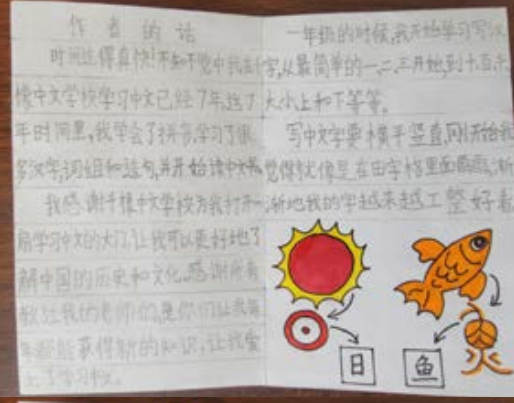 作者的话
时间过得真快!不知不觉中我在千
橡中文学校学习中文已经7年,这7
年时间里,我学会了拼音,学习了很
多汉字,词组和造句,并开始读中文
我感谢千橡中文学校为我打开一
扇学习中文的大门,让我可以更好地了
解中国的历史和文化。感谢所有
教过我的老师们,是你们让我每
年都能获得新的知识,让我爱
上了学习中文。
一年级的时候,我开始学习写汉
字,从最简单的一、二、三开始,到十百千,
大小上和下等等。
写中文字要横平竖直,刚开始我
觉得就像是在田字格里面画画,渐
渐地我的字越来越工整好看
日
鱼